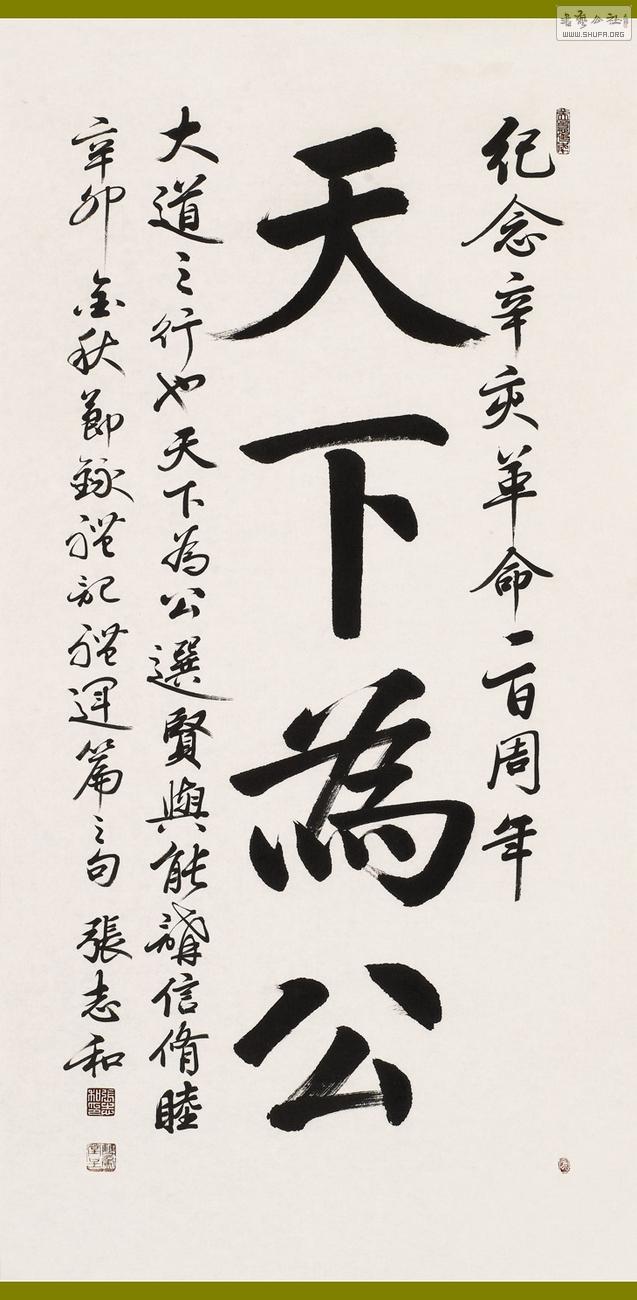 纪念辛亥革命一百周年
天下為公
大道之行也天下為公選賢與能講信脩睦
辛卯金秋節録禮記禮運篇之句 張志和
書藝公社
WWW.SHUFA.ORG